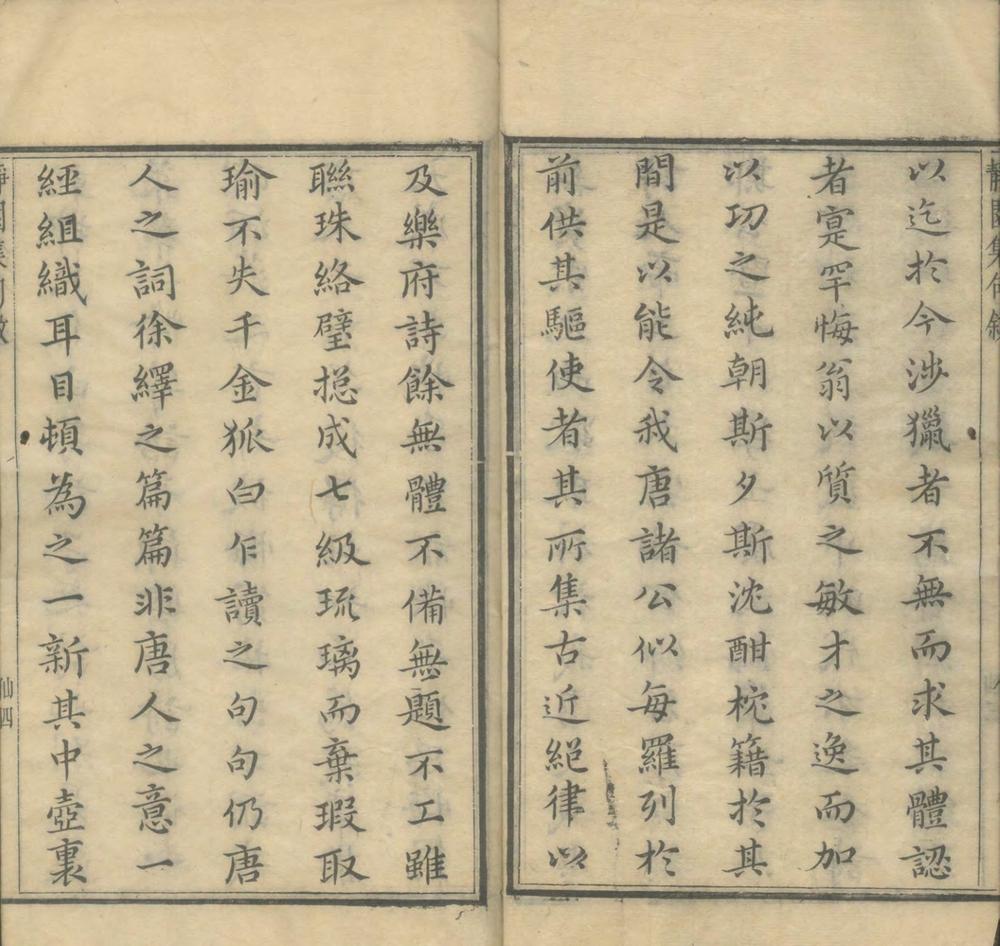 以迄於今涉獵者不無而求其體認
者寔罕悔翁以質之敏才之逸而加
以功之純朝斯夕斯沈酣枕籍於其
間是以能令我唐諸公似每羅列於
前供其驅使者其所集古近絕律以
及樂府詩餘無體不備無題不工雖
聯珠絡璧摠成七級琉璃而棄瑕取
瑜不失千金狐白乍讀之句句仍唐
人之詞徐繹之篇篇非唐人之意一
經組織耳目頓為之一新其中壺裏
仙四